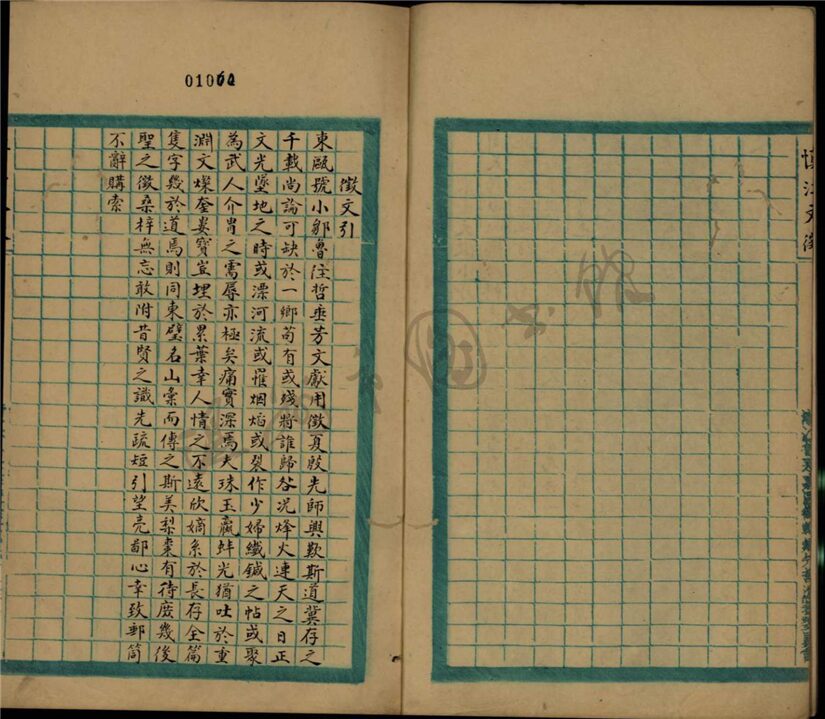 慎江文徵
徵文引
東甌號小鄒魯往哲垂芳文獻用徵夏殷先師興歎斯道冀存之
千載尚論可缺於一鄉苟有或殘將誰歸咎況烽火連天之日正
文光墜地之時或漂河流或摧烟焰或裂作少婦纖鍼之帖或聚
為武人介冑之需辱亦極矣痛實深焉夫珠玉蠃蚌光猶吐於重
淵文燦奎婁寶豈埋於累葉幸人情之不遠欣嫡系於長存全篇
隻字幾於道焉則同東壁名山彙而傳之斯美梨棗有待庶幾後
聖之徵桑梓無忘敢附昔賢之識先疏短引望亮鄙心幸致郵筒
不辭購索